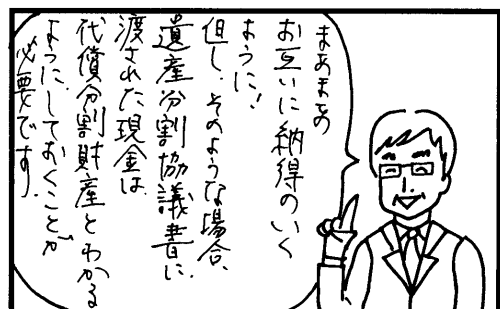 まあまあ
お互いに納得のいく
ように!
但し、そのような場合、
遺産分割協議書に、
渡された現金は
代償分割財産とわかる
ようにしておくことが
必要です。